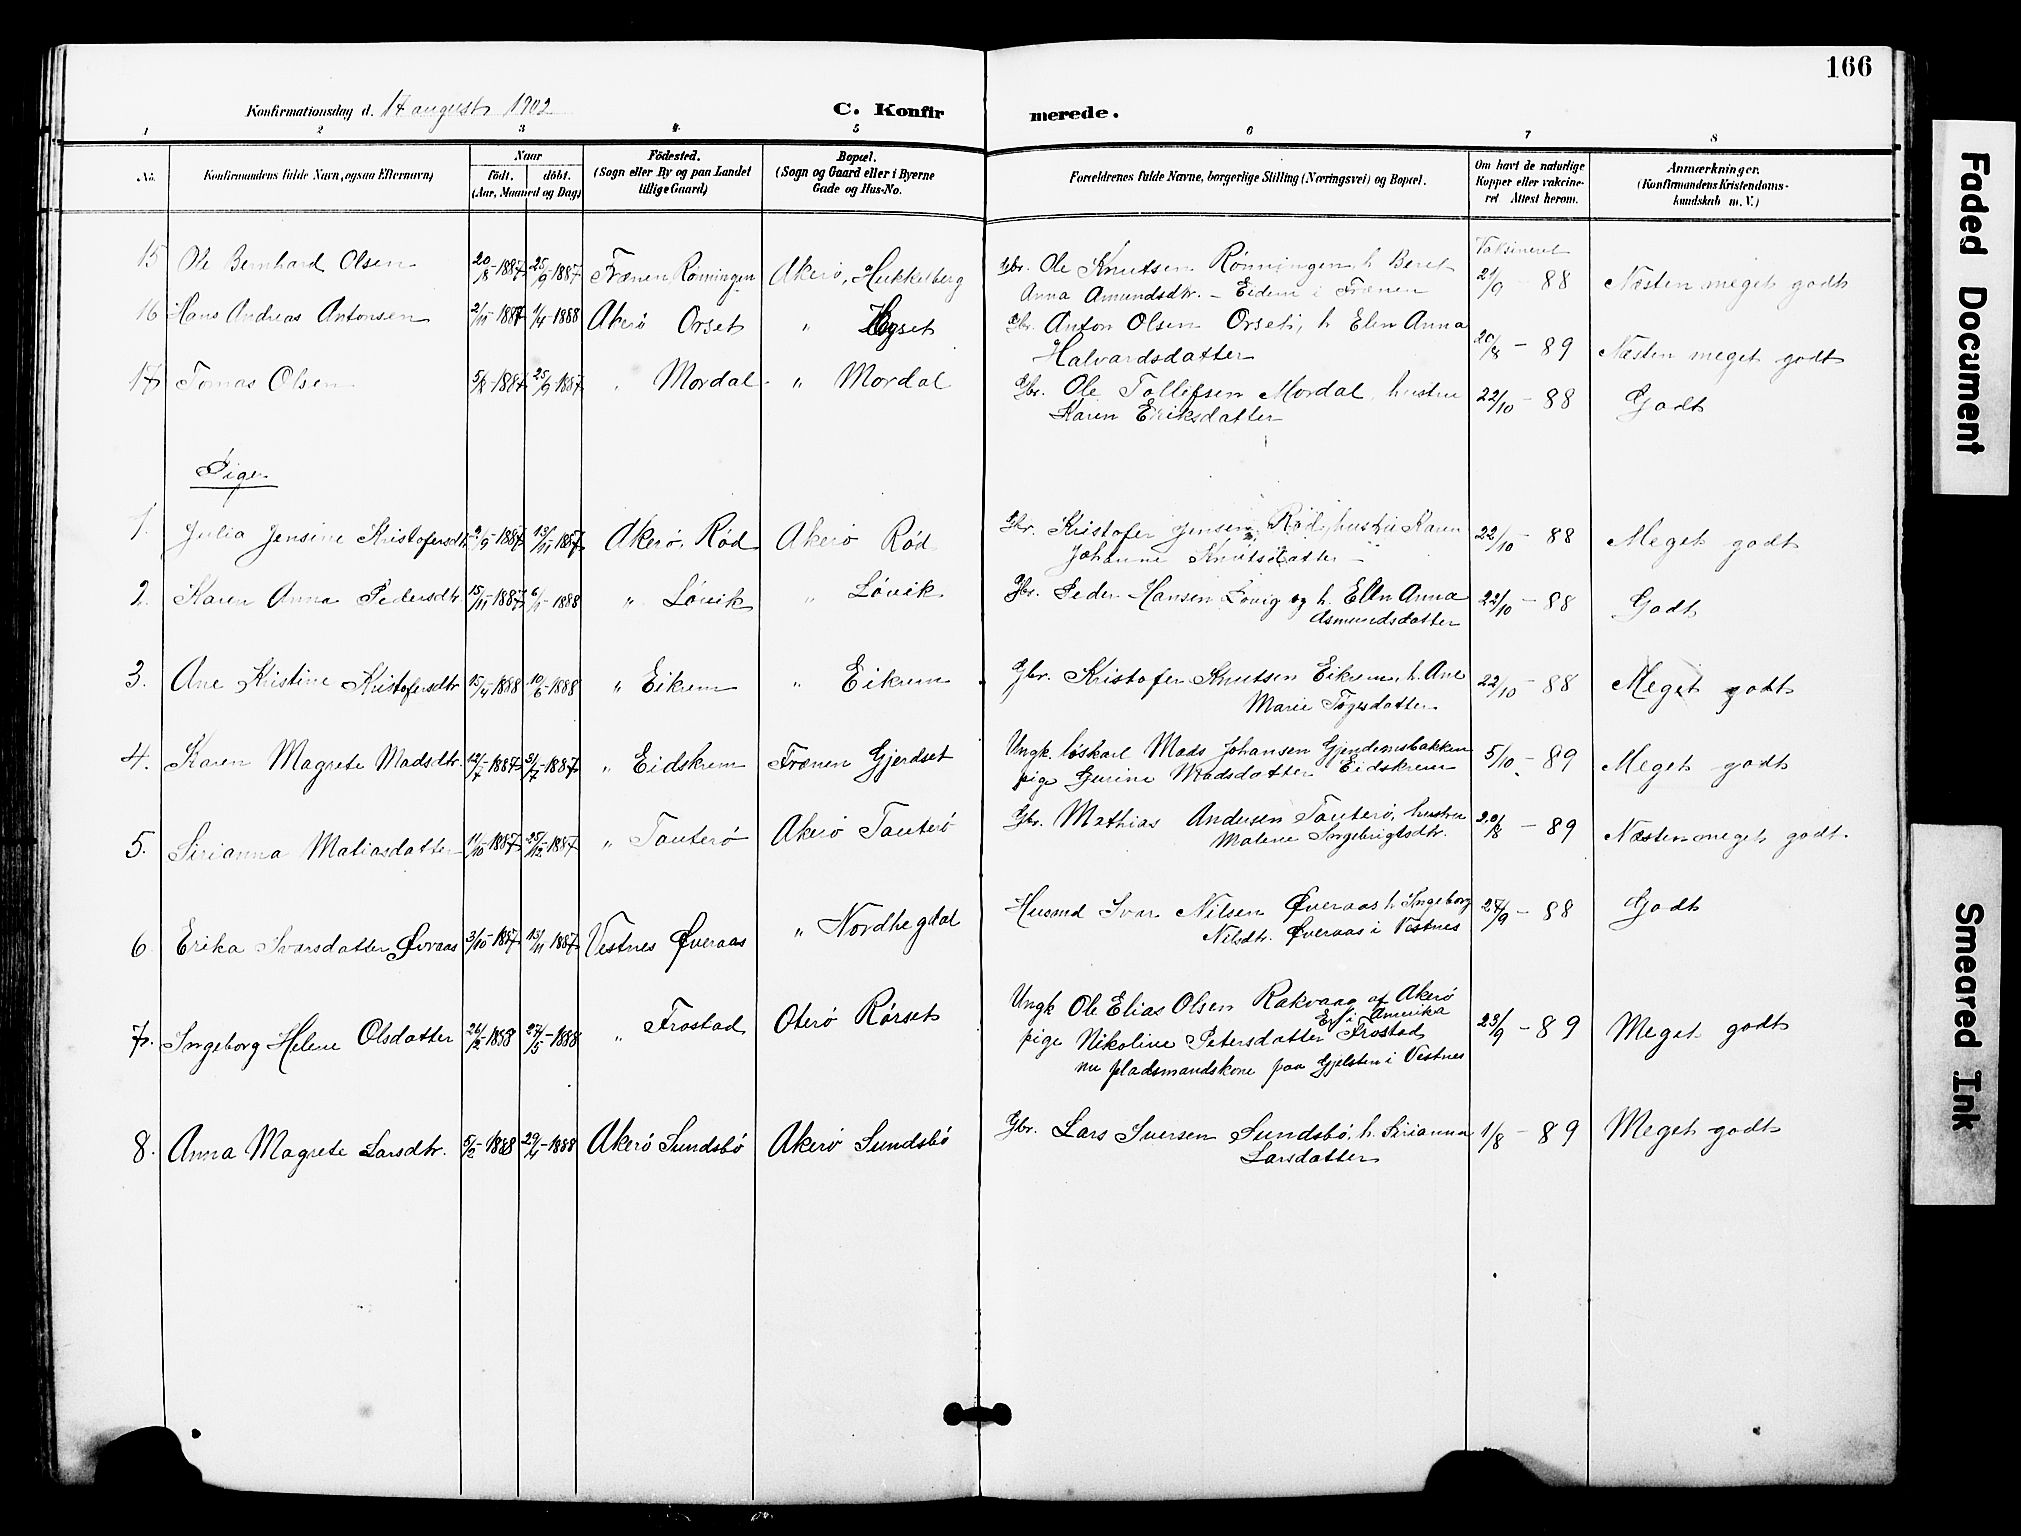 166
Konfirmationsdag d. 17 august 1902 C. Konfirmerede.
1 2 3 4 5 6 7 8
No. Konfirmandens fulde Navn, ogsaa Efternavn) Naar födt. döbt. (Aar, Maaned og Dag) Födested. (Sogn eller By og paa Landet tillige Gaard) Bopæl. (Sogn og Gaard eller i Byerne Gade og Hus-No. Forældrenes fulde Navne, borgerlige Stilling (Næringsvei) og Bopæl. Om havt de naturlige Kopper eller vakcineret Attest herom. Anmærkninger. (Konfirmandens Kristendomskundskab m. V.)
Vaksineret
15 Ole Bernhard Olsen 20/8-1887 25/9-1887 Frænen Rönningen Akerö, Hukkelberg Gbr. Ole Knutsen Rønningen h. Beret 21/9 - 88 Næsten meget godt
Anna Amundsdtr. - Eidem i Frænen
16 Hans Andreas Antonsen 2/11-1887 1/4-1888 Akerö Orset " Gbr. Anton Olsen Orset, h. Elen Anna 20/8 - 89 Næsten meget godt
Halvardsdatter
17 Tomas Olsen 5/8-1887 25/9-1887 " Mordal " Mordal Gbr. Ole Tollefsen Mordal, hustru 22/10 - 88 Godt
Karen Eriksdatter
Piger
1. Julia Jensine Kristofersdtr. 2/9-1887 13/11-1887 Akerö, Rød Akerö Rød Gbr. Kristofer Jensen Rød, hustru Karen 22/10 - 88 Meget godt
Johanne Knutsdatter
2. Karen Anna Pedersdtr 15/11-1887 6/1-1888 " Løvik " Løvik Gbr. Peder Hansen Lovig og h. Ellen Anna 22/10 - 88 Godt
Asmundsdatter
3. Ane Kristine Kristofersdtr 15/4-1888 10/6-1888 " Eikrem " Eikrem Gbr. Kristofer Knutsen Eikrem, h. Ane 22/10 - 88 Meget godt
Marie Togesdatter
4. Karen Magrete Madsdtr. 12/7-1887 31/7-1887 " Eidskrem Frænen Gjerdset Ungk. løskarl Mads Johansen Gjendemsbakken 5/10 - 89 Meget godt
pige Gurine Madsdatter Eidskrem
5. Sirianna Matiasdatter 11/10-1887 25/12-1887 " Tauterö Akerö Tauterö Gbr. Mathias Andersen Tauterö, hustru 20/8 - 89 Næsten meget godt.
Malene Ingebrigtsdtr.
6. Erika Ivarsdatter Øvraas 3/10-1887 13/11-1887 Vestnes Øveraas " Nordhegdal Husmd Ivar Nilsen Øveraas h. Ingeborg 24/9 - 88 Godt
Nilsdtr. Øveraas i Vestnes
7. Ingeborg Helene Olsdatter 26/2-1888 27/5-1888 " Frostad Oterö Rørset Ungk Ole Elias Olsen Rakvaag af Akerö 23/9 - 89 Meget godt
i Amerika
pige Nikoline Petersdatter Frostad
nu pladsmandskone paa Gjelsten i Vestnes
8. Anna Magrete Larsdtr. 5/2-1888 29/4-1888 Akerö Sundsbö Akerö Sundsbö Gbr. Lars Iversen Sundsbö, h. Sirianna 1/8 - 89 Meget godt
Larsdatter
Faded Document
Smeared Ink